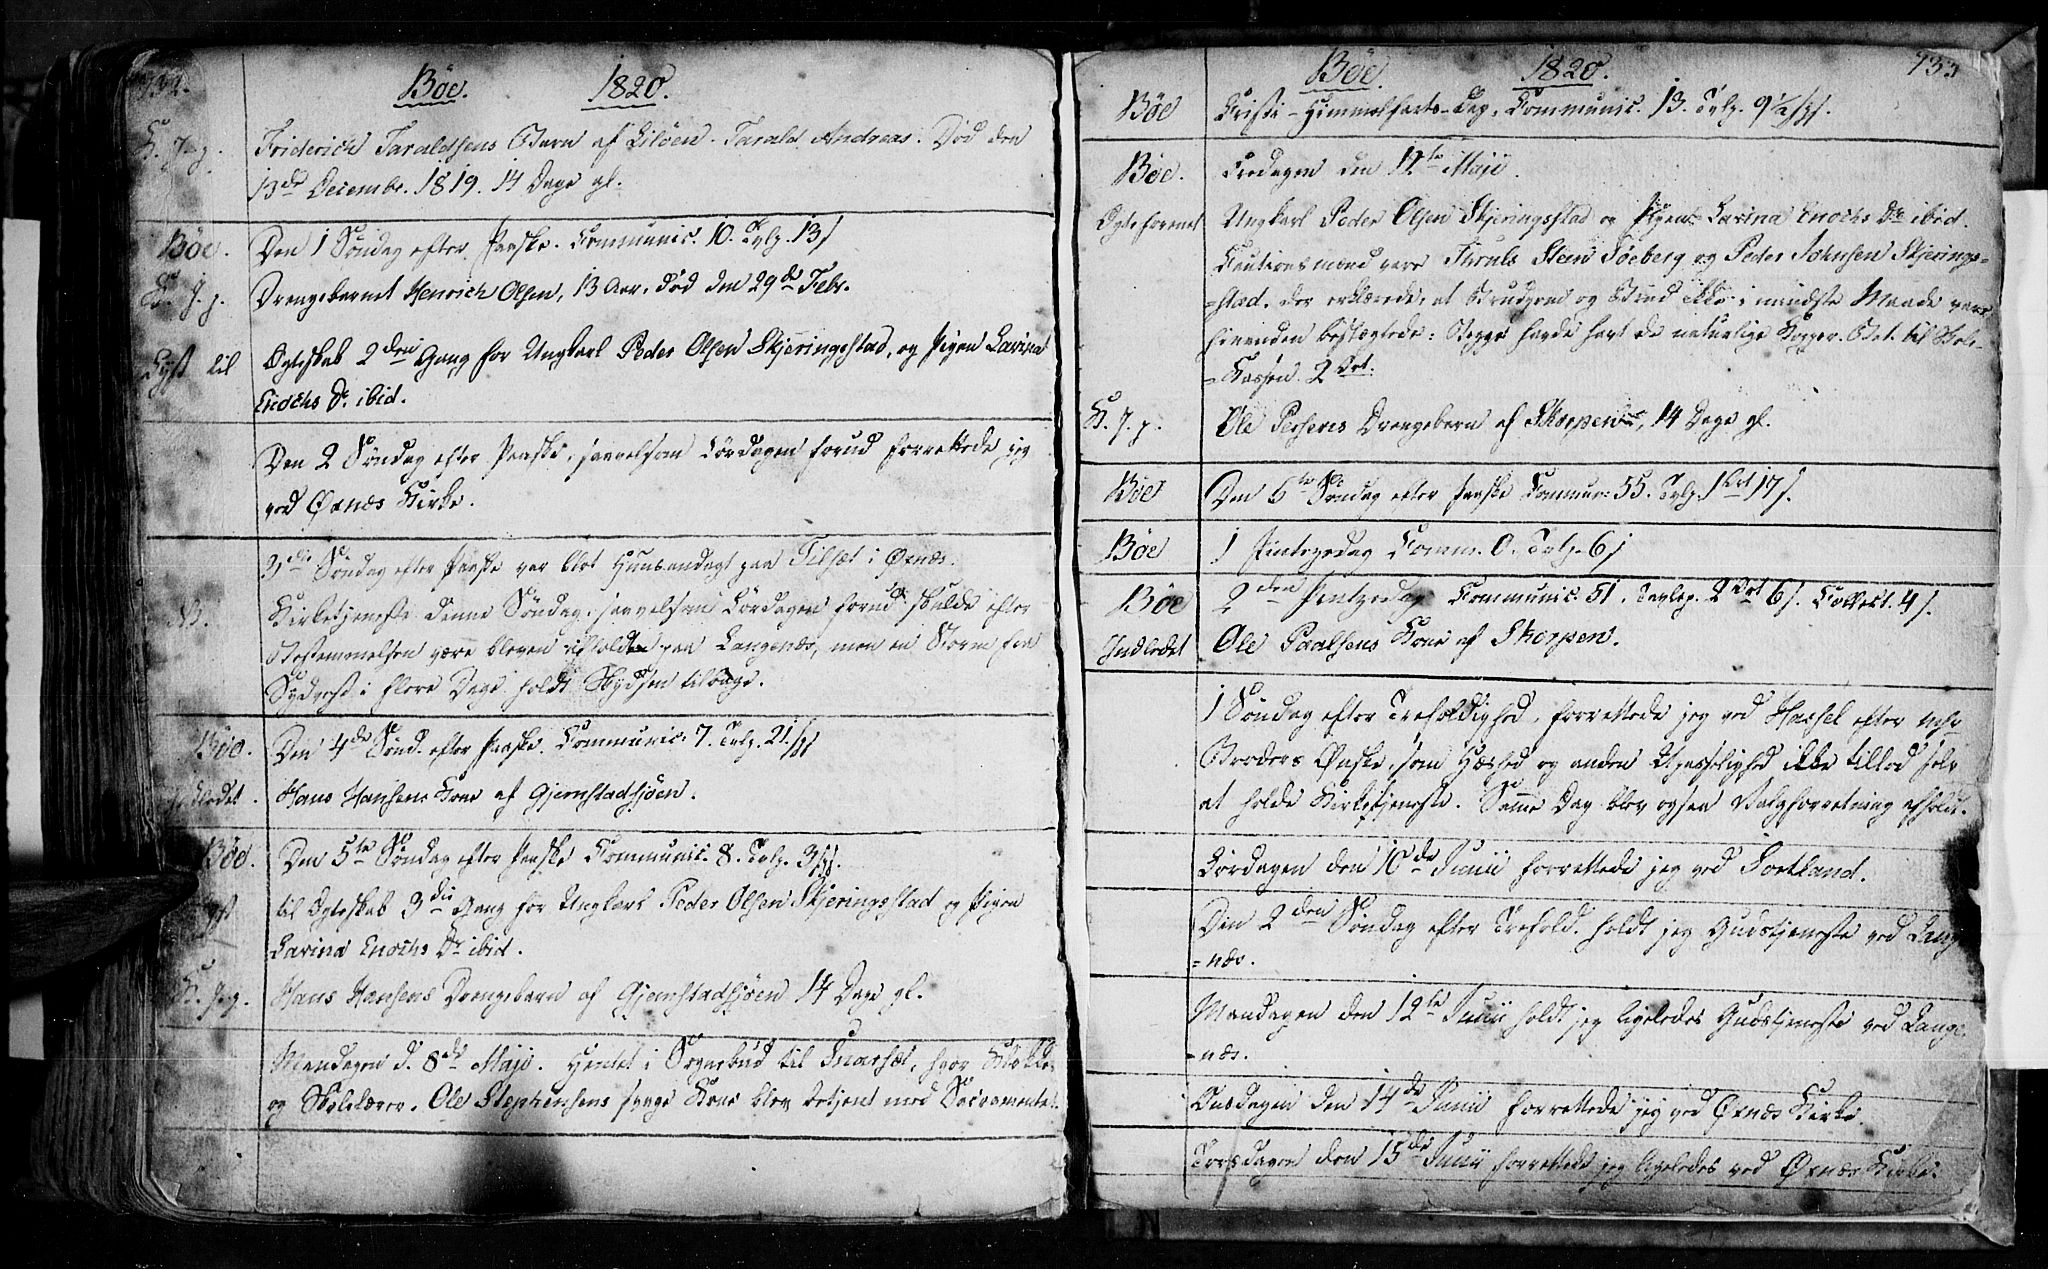 732.
Böe. 1820.
K. J. p. Friderich Taraldsens Barn af Liløen. Tarald Andreas. Død den
13de Decembr. 1819. 14 Dage gl.
Böe. Den 1 Söndag efter Paaske. Communic. 10. Tvlp. 13 s
K. J. p. Drengebarnet Henrich Olsen, 13 Aar. død den 29de Febr.
Lyst til Ægteskab 2den Gang for Ungkarl Peder Olsen Skjeringsstad, og Pigen Lavina
Enochs D. ibid.
Den 2 Söndag efter Paaske, saavelsom Lördagen forud forrettede jeg
ved Øxnæs Kirke.
3die Söndag efter Paaske var blot Huusandagt paa Tilsæt i Øxnæs.
NB. Kirketjeneste denne Söndag, saavelsom Lördagen forud skulde efter
Bestemmelsen være bleven afholden paa Langenæs, men en Storm fra
Sydvest i flere Dage holdt Skydsen tilbage.
Böe. Den 4de Sönd. efter Paaske. Communic. 7. Tvlp. 21 s
Indledet. Hans Hansens Kone af Gjernstadsjöen.
Böe. Den 5te Söndag efter Paaske Communic. 8. Tvlp. 3 s.
Lyst til Ægteskab 3die Gang for Ungkarl Peder Olsen Skjeringsstad og Pigen
Lavina Enochs D. ibid.
K. J. p. Hans Hansens Drengebarn af Gjernstadsjöen 14 Dage gl.
Mandagen d. 8de Maji. Hentet i Sognebud til, hvor Klokker
og Skolelærer Ole Stephensens syge Kone blev betjent med Sacramentet.
Böe. 1820. 733
Böe Christi-Himmelfarts-Dag. Communic. 13. Tvlp. 9 1/2 s.
Böe. Fredagen den 12te Maji.
Ægteforenet Ungkarl Peder Olsen Skjeringsstad og Pigen Lavina Enochs D. ibid.
Cautionsmænd vare Steen Töeberg og Peder Johnsen Skjerings=
=stad, der erklærede, at Brudgom og Brud ikke i mindste Maade vare
hinanden beslægtede: Begge havde havt de naturlige Kopper. Bet. til Skole=
=Kassen. 2 Ort.
K. J. p. Ole Persens Drengebarn af Skorpen, 14 Dage gl.
Böe Den 6te Söndag efter Paaske Commun: 55. Tvlp. 1 Ort 17 s.
Böe 1 Pintsedag Comm. 0. Tvlp. 6 s
Böe 2den Pintsedag Communic. 51. Tavlep. 2 Ort 6 s. Collect. 4 s.
Indledet Ole Paalsens Kone af Skorpen.
1 Söndag efter Trefoldighed, forrettede jeg ved Hassel efter
Broders Ønske, som Hæshed og anden Upasselighed ikke tillod selv
at holde Kirketjeneste. Samme Dag blev ogsaa Valgforretning afholdt.
Lördagen den 10de Junii forrettede jeg ved Sortland.
Den 2den Söndag efter Trefold. holdt jeg Gudstjeneste ved Lange
=næs.
Mandagen den 12te Junii holdt jeg ligeledes Gudstjeneste ved Lange
=næs.
Onsdagen den 14de Junii forrettede jeg ved Øxnæs Kirke.
Torsdagen den 15de Junii forrettede jeg ligeledes ved Øxnæs Kirke.